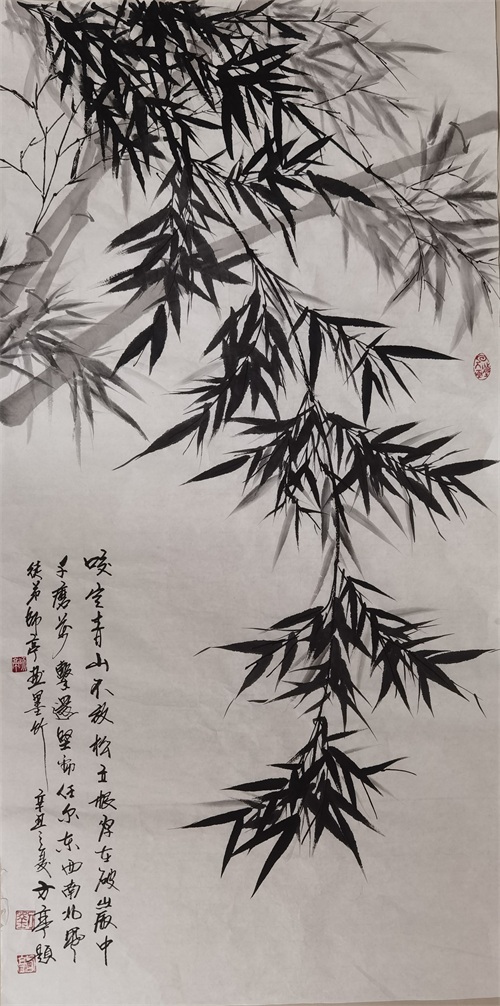 咬定青山不放松立根原在破岩中
千磨万擊還坚劲任尔东西南北風
徒弟師亭畫墨竹 辛丑之夏方亭題